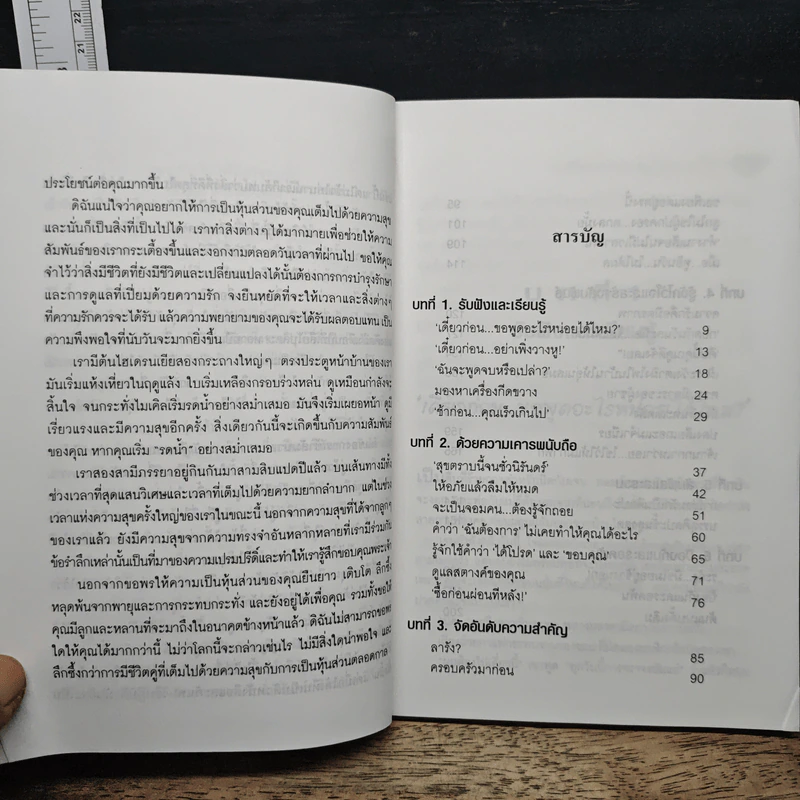 21
22
ประโยชน์ต่อคุณมากขึ้น
ดิฉันแน่ใจว่าคุณอยากให้การเป็นหุ้นส่วนของคุณเต็มไปด้วยความสุข
และนั่นก็เป็นสิ่งที่เป็นไปได้ เราทำสิ่งต่างๆ ได้มากมายเพื่อช่วยให้ความ
สัมพันธ์ของเรากระเตื้องขึ้นและงอกงามตลอดวันเวลาที่ผ่านไป ขอให้คุณ
จำไว้ว่าสิ่งมีชีวิตที่ยังมีชีวิตและเปลี่ยนแปลงได้นั้นต้องการการบำรุงรักษา
และการดูแลที่เปี่ยมด้วยความรัก จงยืนหยัดที่จะให้เวลาและสิ่งต่างๆ
ที่ความรักควรจะได้รับ แล้วความพยายามของคุณจะได้รับผลตอบแทนเป็น
ความพึงพอใจที่นับวันจะมากยิ่งขึ้น
เรามีต้นไฮเดรนเยียสองกระถางใหญ่ๆ ตรงประตูหน้าบ้านของเรา
มันเริ่มแห้งเหี่ยวในฤดูแล้ง ใบเริ่มเหลืองกรอบร่วงหล่น ดูเหมือนกำลังจะ
สิ้นใจ จนกระทั่งไมเคิลเริ่มรดน้ำอย่างสม่ำเสมอ มันจึงเริ่มเผยอหน้า ดูมี
เรี่ยวแรงและมีความสุขอีกครั้ง สิ่งเดียวกันนี้จะเกิดขึ้นกับความสัมพันธ์
ของคุณ หากคุณเริ่ม "รดน้ำ" อย่างสม่ำเสมอ
เราสองสามีภรรยาอยู่กินกันมาสามสิบแปดปีแล้ว บนเส้นทางมีทั้ง
ช่วงเวลาที่สุดแสนวิเศษและเวลาที่เต็มไปด้วยความยากลำบาก แต่ในช่วง
เวลาแห่งความสุขครั้งใหญ่ของเราในขณะนี้ นอกจากความสุขที่ได้จากลูกๆ
ของเราแล้ว ยังมีความสุขจากความทรงจำอันหลากหลายที่เรามีร่วมกัน
ข้อรำลึกเหล่านั้นเป็นที่มาของความเปรมปรีดิ์และทำให้เรารู้สึกขอบคุณพระเจ้า
นอกจากขอพรให้ความเป็นหุ้นส่วนของคุณยืนยาว เติบโต ลึกซึ้ง
หลุดพ้นจากพายุและการกระทบกระทั่ง และยังอยู่ได้เพื่อคุณ รวมทั้งขอให้
คุณมีลูกและหลานที่จะมาถึงในอนาคตข้างหน้าแล้ว ดิฉันไม่สามารถขอพร
ใดให้คุณได้มากกว่านี้ ไม่ว่าโลกนี้จะกล่าวเช่นไร ไม่มีสิ่งใดน่าพอใจ และ
ลึกซึ้งกว่าการมีชีวิตคู่ที่เต็มไปด้วยความสุขกับการเป็นหุ้นส่วนตลอดกาล
สารบัญ
บทที่ 1. รับฟังและเรียนรู้
'เดี๋ยวก่อน...ขอพูดอะไรหน่อยได้ไหม?' 9
'เดี๋ยวก่อน...อย่าเพิ่งวางหู!' 13
'ฉันจะพูดจบหรือเปล่า?' 18
มองหาเครื่องกีดขวาง 24
'ช้าก่อน...คุณเร็วเกินไป' 29
บทที่ 2. ด้วยความเคารพนับถือ
'สุขตราบนี้จนชั่วนิรันดร์' 37
ให้อภัยแล้วลืมให้หมด 42
จะเป็นจอมคน...ต้องรู้จักถอย 51
คำว่า 'ฉันต้องการ' ไม่เคยทำให้คุณได้อะไร 60
รู้จักใช้คำว่า 'ได้โปรด' และ 'ขอบคุณ' 65
ดูแลสตางค์ของคุณ 71
'ซื้อก่อนผ่อนทีหลัง!' 76
บทที่ 3. จัดอันดับความสำคัญ
ลารัง? 85
ครอบครัวมาก่อน 90